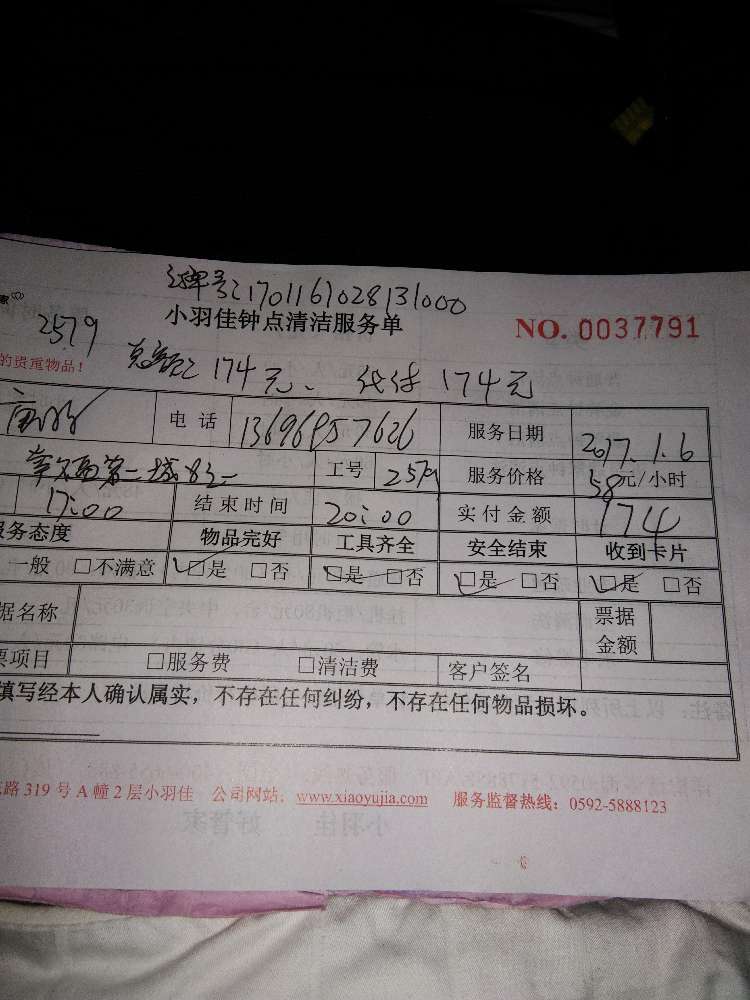 订单号:1701161028131000
小羽佳钟点清洁服务单 NO. 0037791
家
2579
的贵重物品!
总额: 174元、 代付 174元
电话 13696957626 服务日期 2017.1.6
第一城 工号 2579 服务价格 58元/小时
17:00 结束时间 20:00 实付金额 174
服务态度 物品完好 工具齐全 安全结束 收到卡片
一般 □不满意 □是 □否 □是 □否 □是 □否 □是 □否
据名称 票据金额
票项目 □服务费 □清洁费 客户签名
填写经本人确认属实，不存在任何纠纷，不存在任何物品损坏。
路 319 号 A 幢 2 层小羽佳 公司网站: www.xiaoyujia.com 服务监督热线: 0592-5888123
小羽佳 好管家